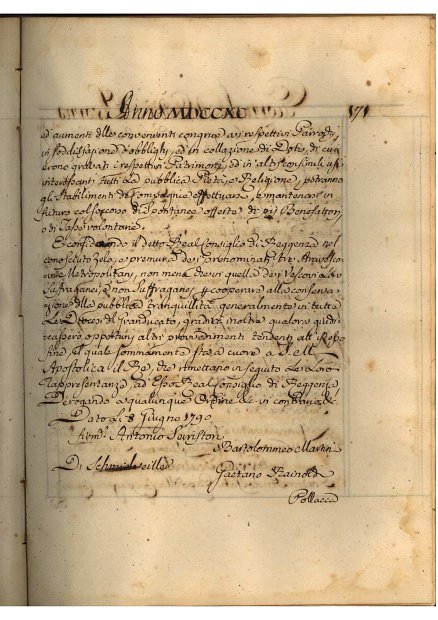 Anno MDCCXC
171
ed aumenti delle convenienti congrue ai respettivi Parrochi,
in sodisfazione d'obblighi, ed in collazione di Doti, di cui
erono gravati i respettivi Patrimoni, ed in altri consimili usi
interessanti tutti la pubblica Pietà, e Religione, potranno
gli Stabilimenti di Compagnie effettuarsi, e mantenersi in
futuro col soccorso di spontanee offerte di pij Benefattori
o di Tasse volontarie.
E confidando il detto Real Consiglio di Reggenza nel
conosciuto zelo, e premura dei prenominati tre Arcivesco
vi Metropolitani, non meno che in quella dei Vescovi Loro
Suffraganei, e non Suffraganei per cooperare alla conserva
zione della pubblica tranquillità generalmente in tutte
Le Diocesi del Granducato, gradirà inoltre qualora giudi
cassero opportuni altri provvedimenti tendenti all'
fine, il quale sommamente sta a cuore a S. M.
Apostolica il Re, che rimettano in seguito Le Loro
Rappresentanze ad esso Real Consiglio di Reggenza
Derogando a qualunque Ordine &c. in contrario &c.
Dato Li 8 Giugno 1790.
firm. Antonio Serristori
Bartolommeo Martini
Di Schmidveiller
Gaetano Rainoldi
Pollacci